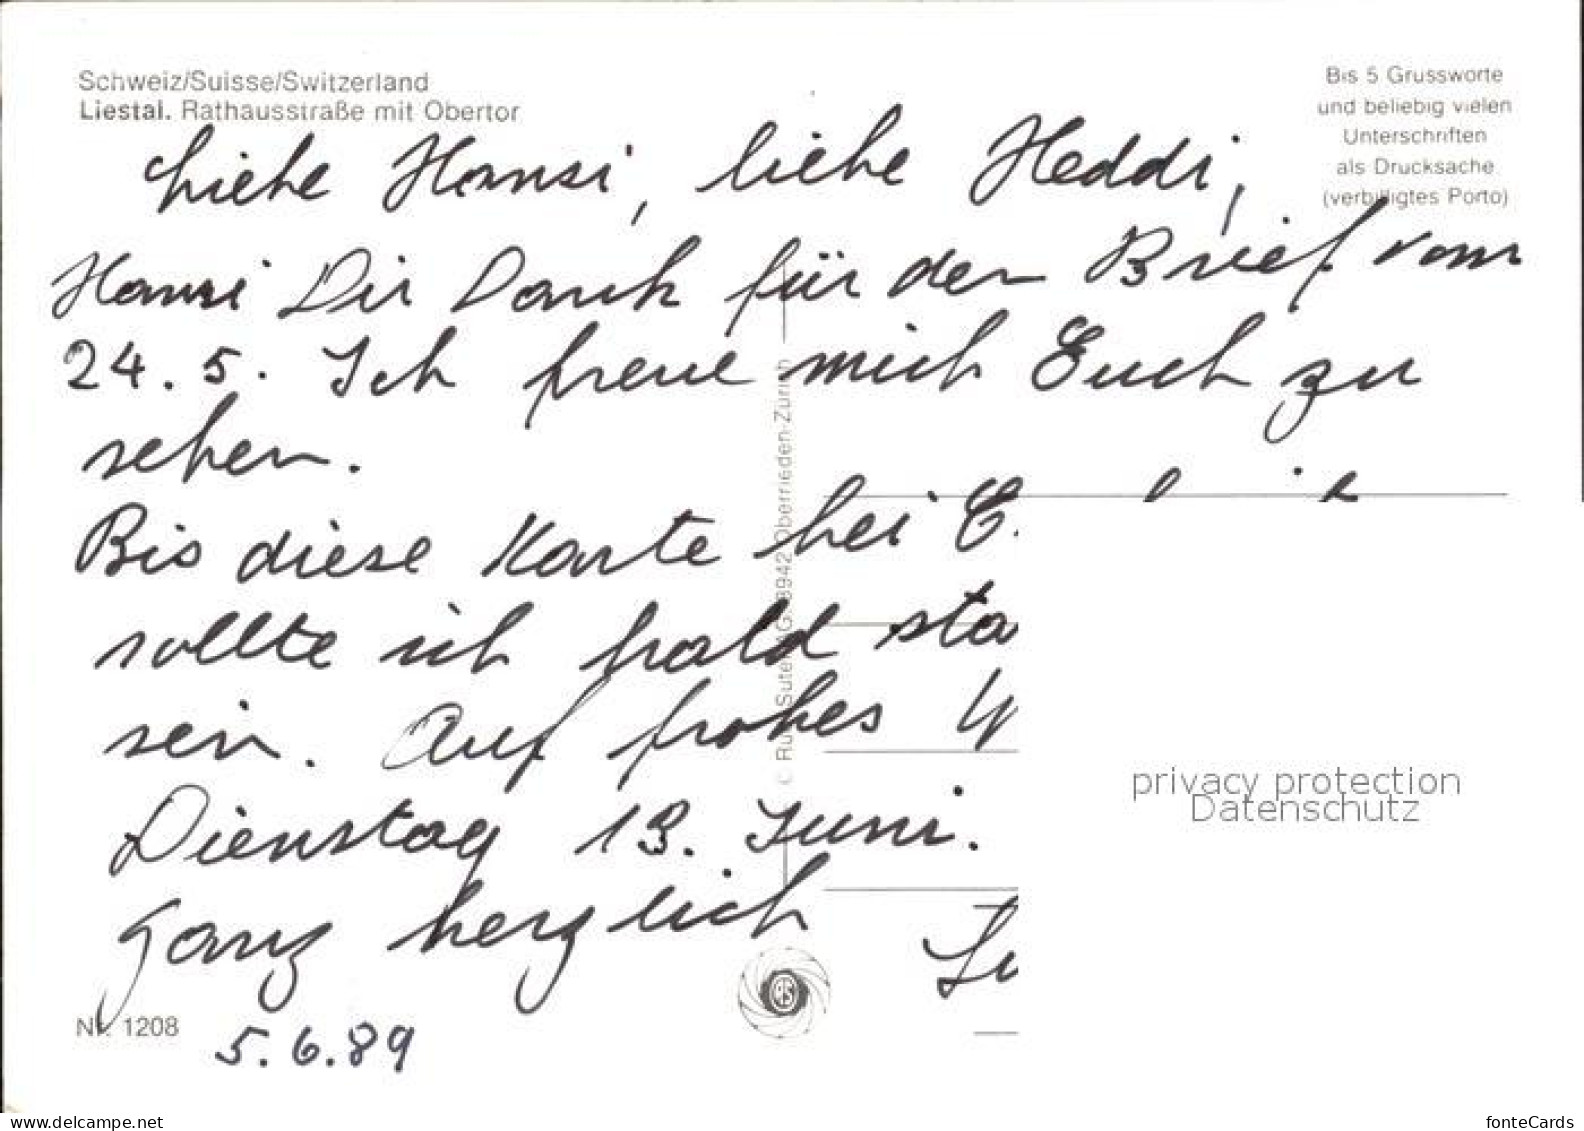 Schweiz/Suisse/Switzerland
Liestal. Rathausstraße mit Obertor
Bis 5 Grussworte
und beliebig vielen
Unterschriften
als Drucksache
(verbilligtes Porto)
Liebe Hansi, liebe Heddi,
Hansi Dir Dank für den Brief vom
24.5. Ich freue mich Euch zu
sehen.
Bis diese Karte bei E.
sollte ich bald sta
sein. Auf frohes W
Dienstag 13. Juni.
Ganz herzlich
5.6.89
Nr. 1208
8942 Oberrieden-Zürich
privacy protection
Datenschutz
www.delcampe.net
fonteCards